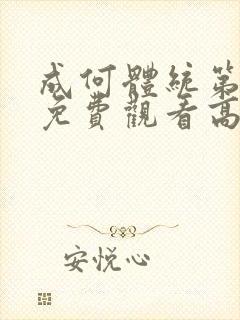 成何體統第
免費觀看高
安悅心